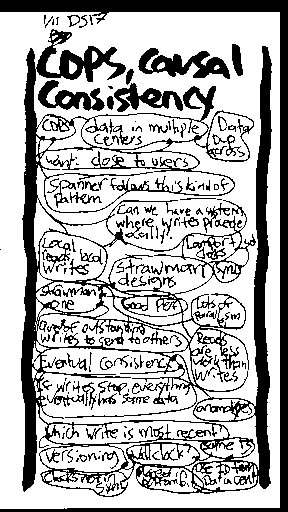 1/11 DS17
COPS, causal
Consistency
COPS
data in multiple
centers
Data
Dup
across
want: close to users
Spanner follows this kind of
pattern
Can we have a system
where writes procede
locally?
Local
reads, local
writes
Lamport
clocks
strawman
designs
strawman
one
Good Perf
Lots of
Parallelism
Queue of outstanding
writes to send to others
Reads
are less
than
writes
Eventual consistency
If writes stop, everything
eventually has same data
anomalies
which write is most recent?
versioning
wallclock?
same TS
clocks not in
sync
use ID from
Data Cent